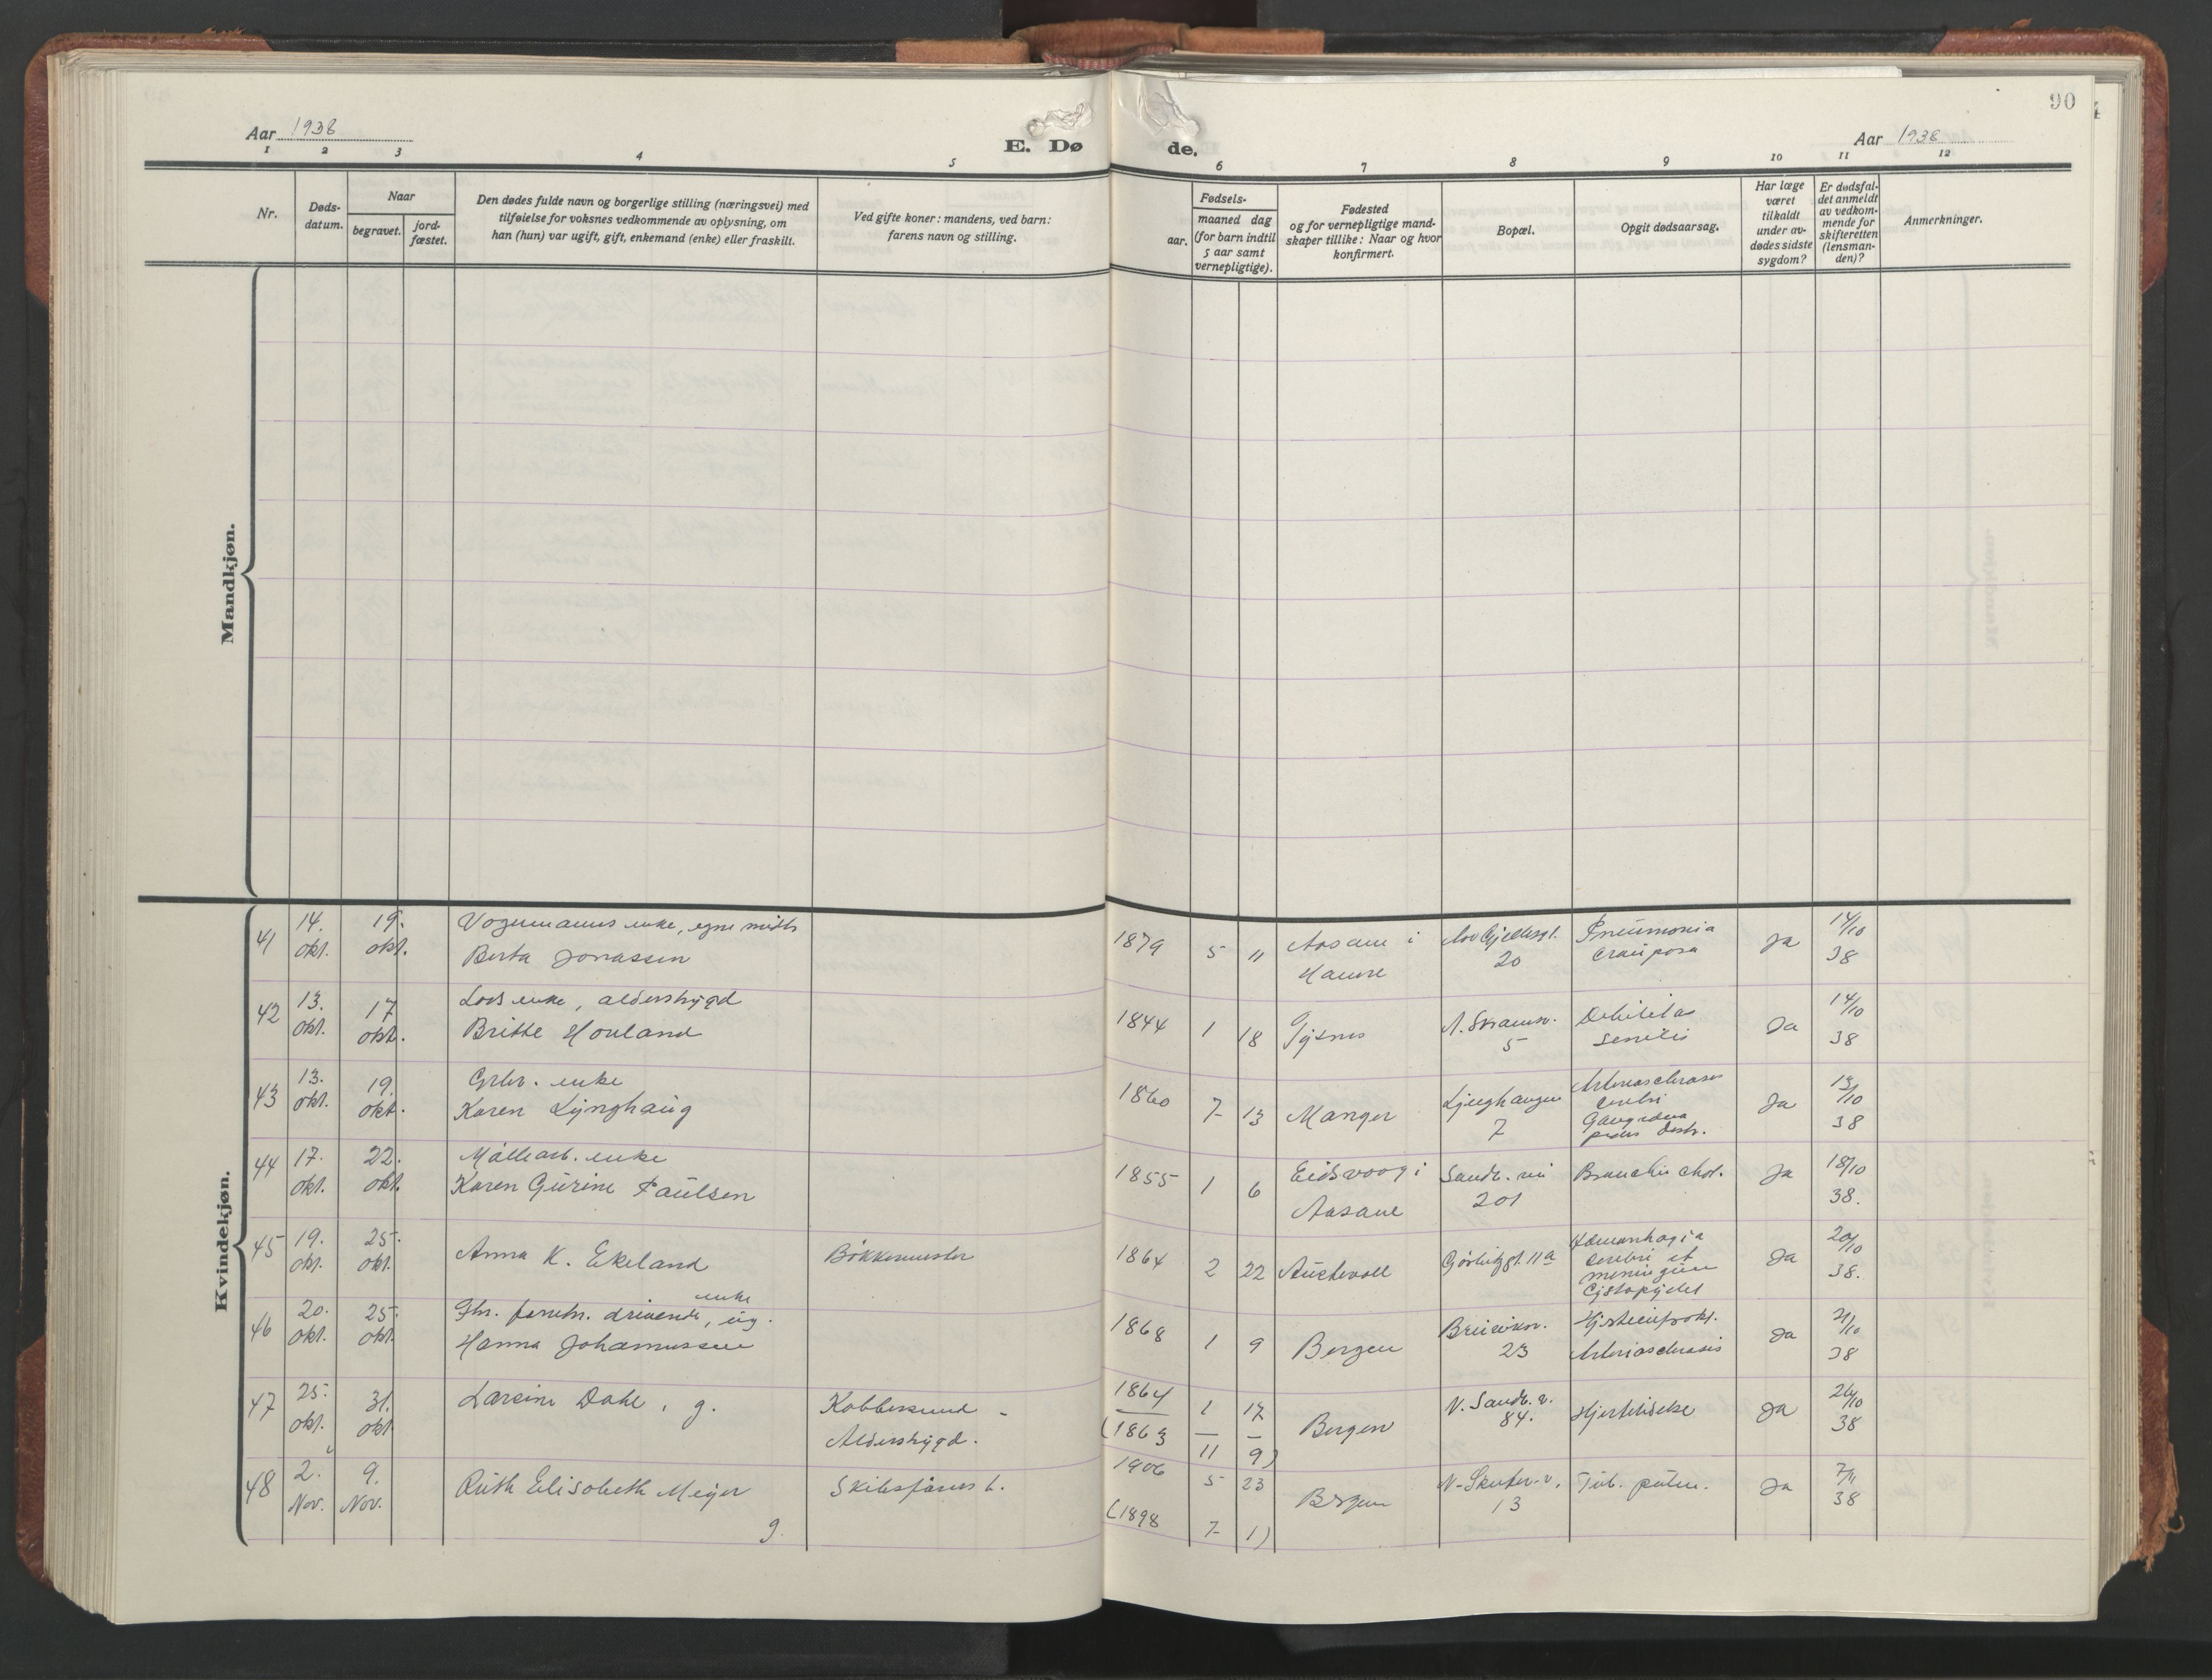 90
Aar 1938
E. Dø
de.
Aar 1938
1 2 3 4 5 6 7 8 9 10 11 12
Nr.
Døds-
datum.
Naar
begravet.
jord-
fæstet.
Den dødes fulde navn og borgerlige stilling (næringsvei) med
tilføielse for voksnes vedkommende av oplysning, om
han (hun) var ugift, gift, enkemand (enke) eller fraskilt.
Ved gifte koner: mandens, ved barn:
farens navn og stilling.
Fødsels-
aar.
maaned dag
(for barn indtil
5 aar samt
vernepligtige).
Fødested
og for vernepligtige mand-
skaper tillike: Naar og hvor
konfirmert.
Bopæl.
Opgit dødsaarsag.
Har læge
været
tilkaldt
under av-
dødes sidste
sygdom?
Er dødsfal-
det anmeldt
av vedkom-
mende for
skifteretten
(lensman-
den)?
Anmerkninger.
Mandkjøn.
Kvindekjøn.
41 14. okt. 19. okt.
Vognmanns enke, egne midler
Berta Jonassen
1879 5 11
Aasane i
Hamre
20
Pneumonia
crouposa
Ja
14/10
38
42 13. okt. 17 okt.
Los enke, alderstrygd
Britte Hovland
1844 1 18
5
Debilitas
senilis
Ja
14/10
38
43 13. okt. 19. okt.
Grbr. enke
Karen Lynghaug
1860 7 13
Manger
Lynghaugen
7
Arteriosclerosis
cerebri
Gangræna
pedis destr.
Ja
13/10
38
44 17. okt. 22. okt.
Møllearb. enke
Karen Gurine Paulsen
1855 1 6
Eidsvaag i
Aasane
Sandv. vei
201
Ja
18/10
38.
45 19. okt. 25. okt.
Anna K. Ekeland
Bøkkermester
enke
1864 2 22
Austevoll
11a
Hæmorrhagia
cerebri et
meningiem
Ja
20/10
38.
46 20. okt. 25. okt.
Fhv. forretn. drivende, ug.
Hanna Johannessen
1868 1 9
Bergen
23
Arteriosclerosis
Ja
21/10
38
47 25. okt. 31. okt.
Larsine Dahl, g.
Kobbersmed -
Alderstrygd.
1864 1 17
(1863 11 9)
Bergen
N. Sandv. v.
84.
Hjertelidelse
Ja
26/10
38
48 2. Nov. 9. Nov.
Ruth Elisabeth Meyer
g.
Skibsførers h.
1906 5 23
(1898 7 1)
Bergen
N. Skutev. v.
13
Tub. pulm.
Ja
7/11
38